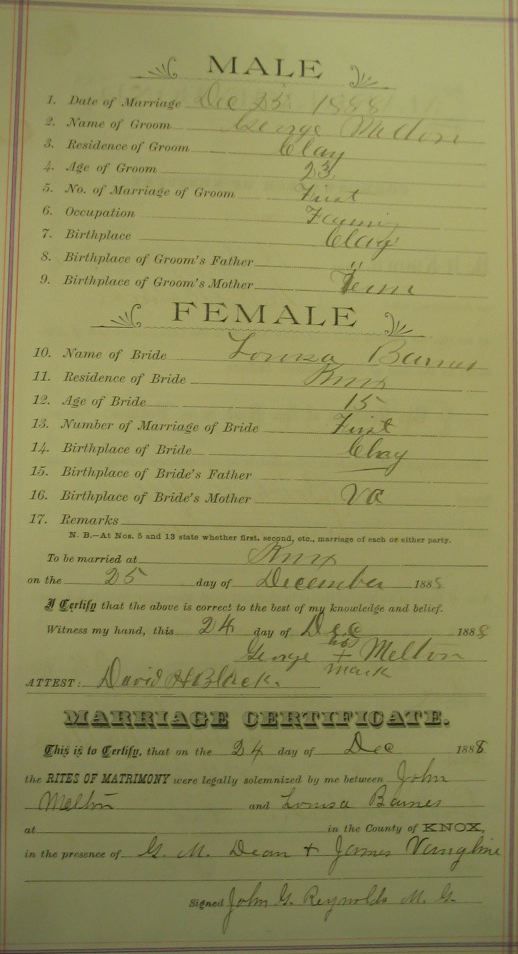 MALE
1. Date of Marriage Dec 25 1888
2. Name of Groom George Melton
3. Residence of Groom Clay
4. Age of Groom 23
5. No. of Marriage of Groom First
6. Occupation Farming
7. Birthplace Clay
8. Birthplace of Groom's Father "
9. Birthplace of Groom's Mother Tenn
FEMALE
10. Name of Bride Louisa Barnes
11. Residence of Bride Knox
12. Age of Bride 15
13. Number of Marriage of Bride First
14. Birthplace of Bride Clay
15. Birthplace of Bride's Father
16. Birthplace of Bride's Mother Va
17. Remarks
N. B.—At Nos. 5 and 13 state whether first, second, etc., marriage of each or either party.
To be married at Knox
on the 25 day of December 1888
I Certify that the above is correct to the best of my knowledge and belief.
Witness my hand, this 24 day of Dec 1888
his
George + Melton
mark
ATTEST: David H Black.
MARRIAGE CERTIFICATE.
This is to Certify, that on the 24 day of Dec 1888
the RITES OF MATRIMONY were legally solemnized by me between John
Melton and Louisa Barnes
at in the County of KNOX,
in the presence of G. M. Dean + James
Signed John G. Reynolds M. G.